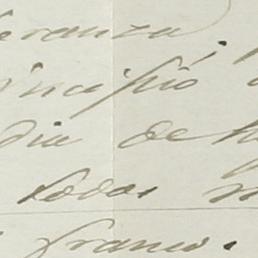 eranza
incipió
dia de
todos
franco.